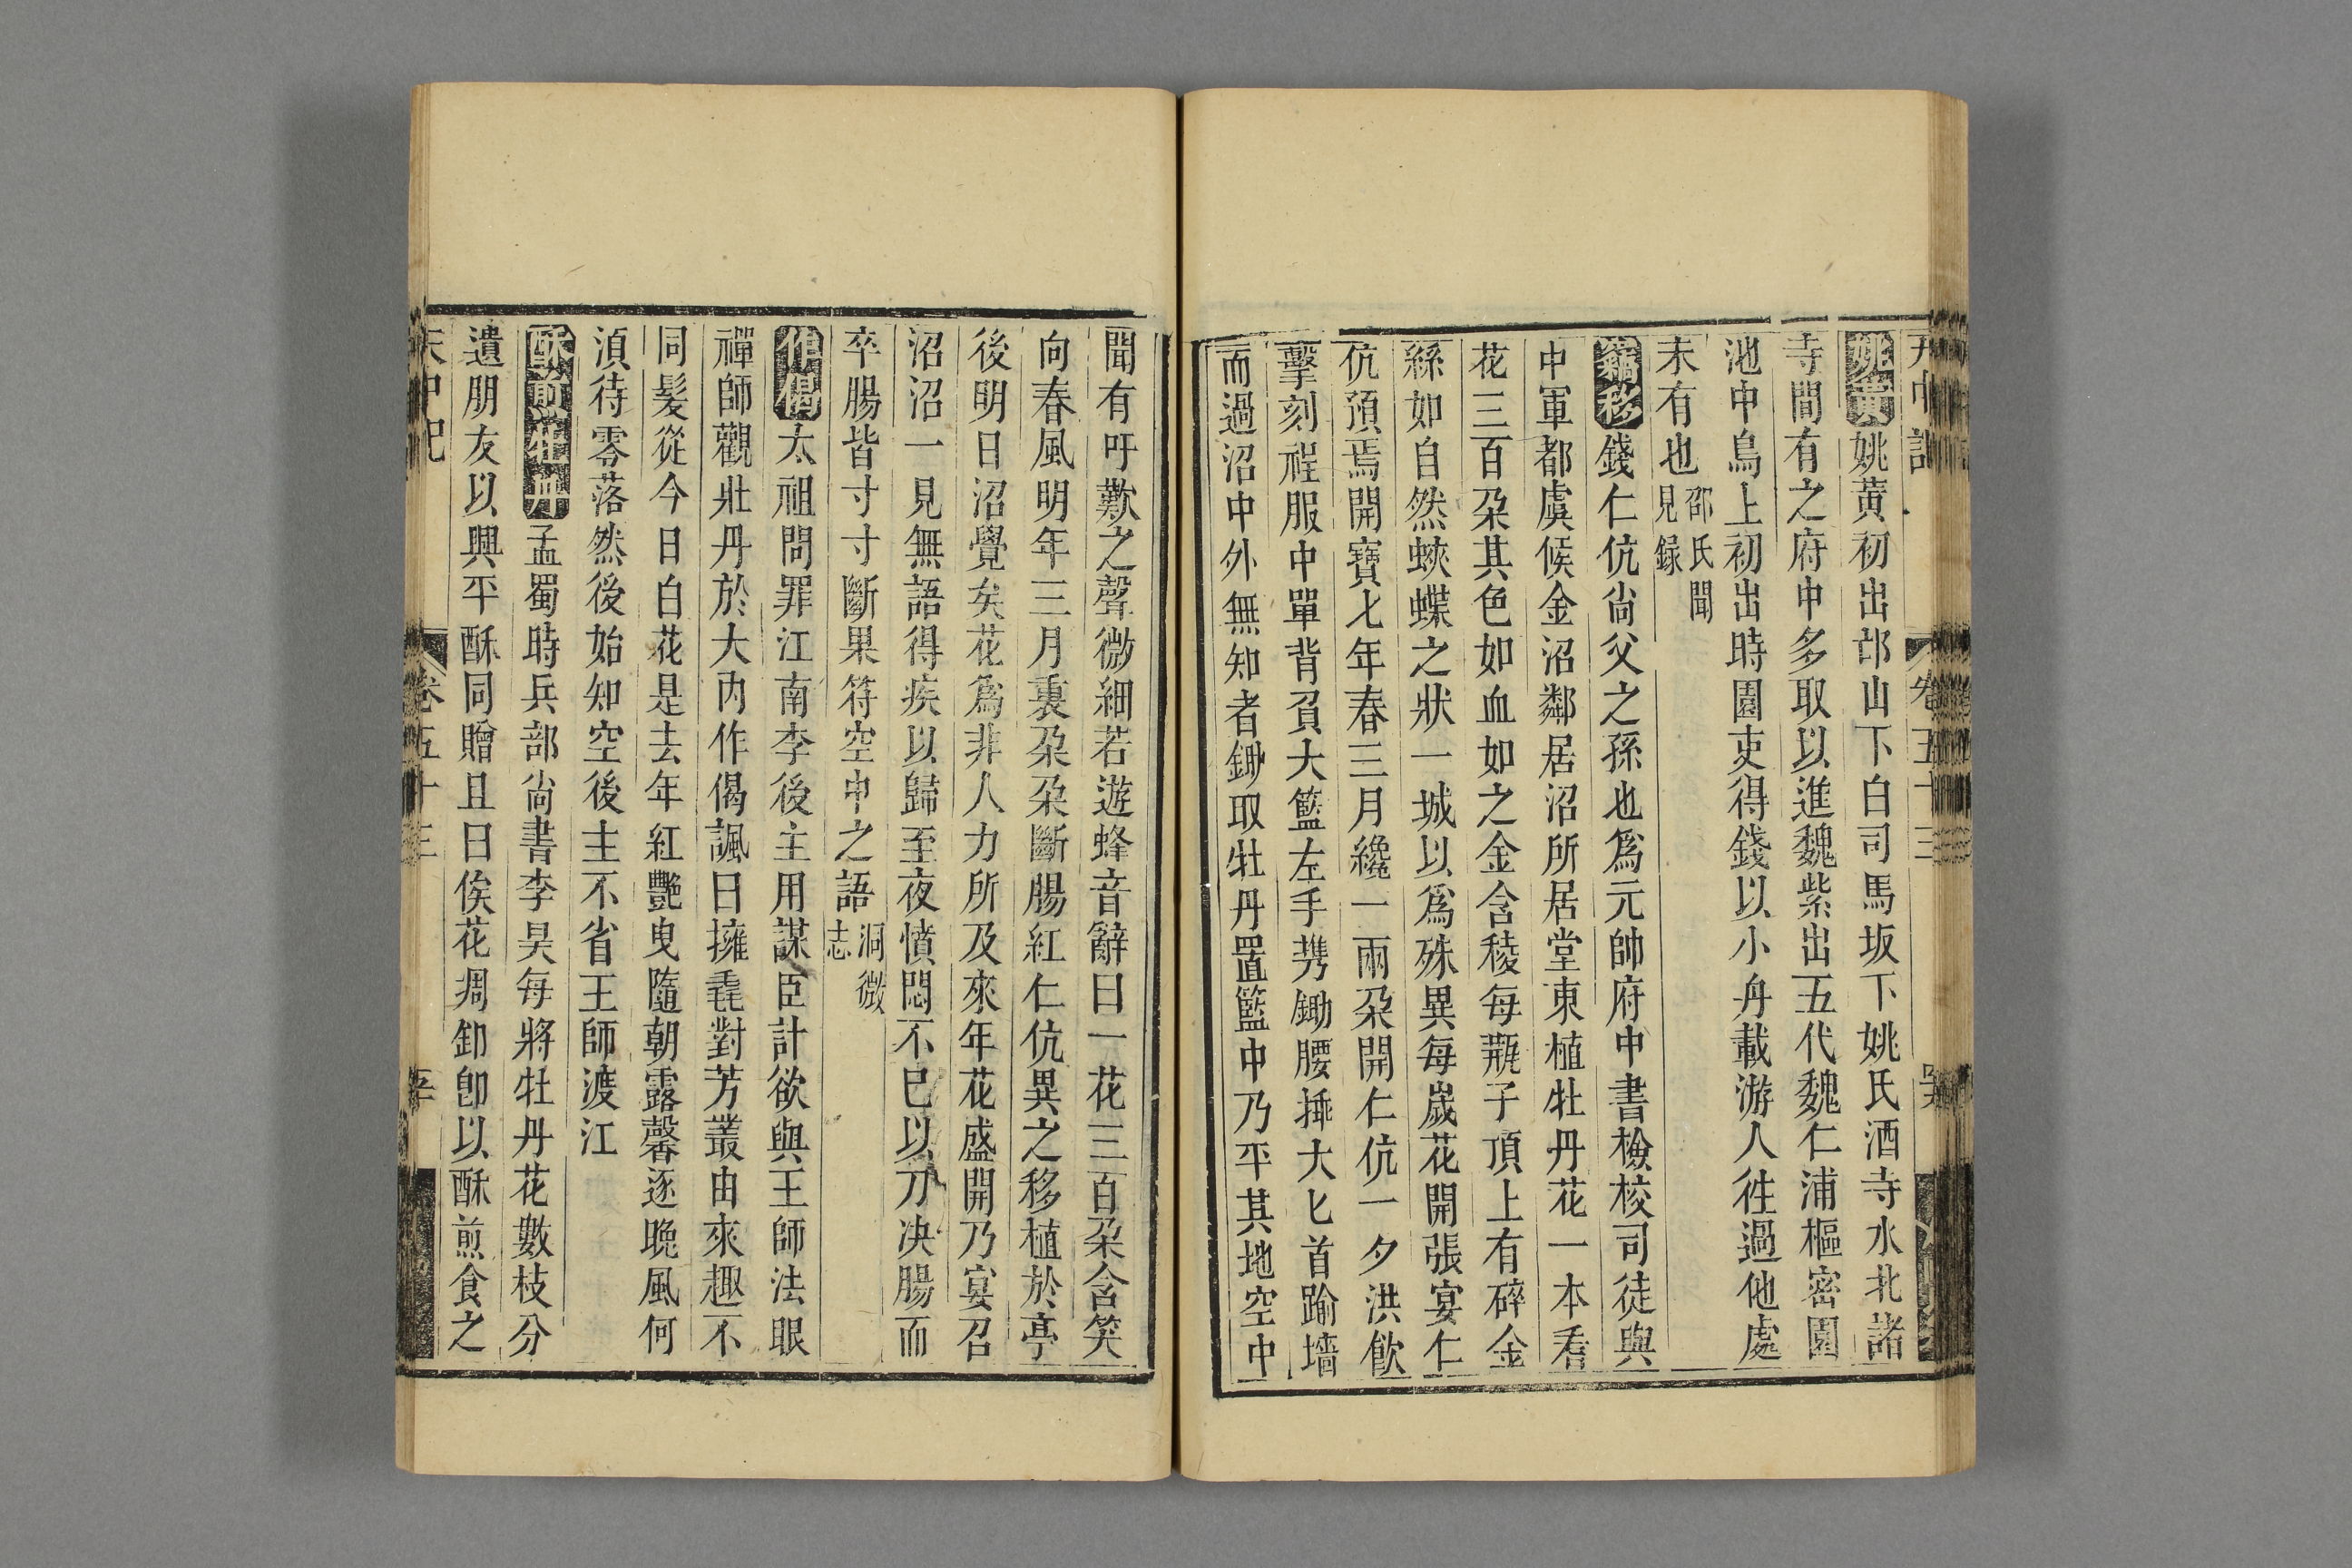 姚黃姚黃初出邙山下白司馬坂下姚氏酒寺水北諸
寺間有之府中多取以進魏紫出五代魏仁浦樞密園
池中島上初出時園吏得錢以小舟載游人徃過他處
未有也邵氏聞
見錄
竊移錢仁伉尙父之孫也爲元帥府中書檢校司徒與
中軍都虞候金沼鄰居沼所居堂東植牡丹花一本着
花三百朶其色如血如之金含稜每甁子頂上有碎金
絲如自然蛺蝶之狀一城以爲殊異每歲花開張宴仁
伉預焉開寶七年春三月纔一兩朶開仁伉一夕洪飮
擊刻裎服中單背負大籃左手携鋤腰揷大匕首踰墻
而過沼中外無知者鋤取牡丹置籃中乃平其地空中
聞有吁歎之聲微細若遊蜂音辭曰一花三百朶含笑
向春風明年三月裏朶朶斷腸紅仁伉異之移植於亭
後明日沼覺矣花爲非人力所及來年花盛開乃宴召
沼沼一見無語得疾以歸至夜憤悶不已以刀决腸而
卒腸皆寸寸斷果符空中之語洞微
志
作偈太祖問罪江南李後主用謀臣計欲與王師法眼
禪師觀壯丹於大內作偈諷曰擁毳對芳叢由來趣不
同髮從今日白花是去年紅艷曳隨朝露馨逐晚風何
湏待零落然後始知空後主不省王師渡江
酥煎牡丹孟蜀時兵部尙書李昊每將牡丹花數枝分
遺朋友以興平酥同贈且曰俟花凋卸卽以酥煎食之
天中記
卷五十三